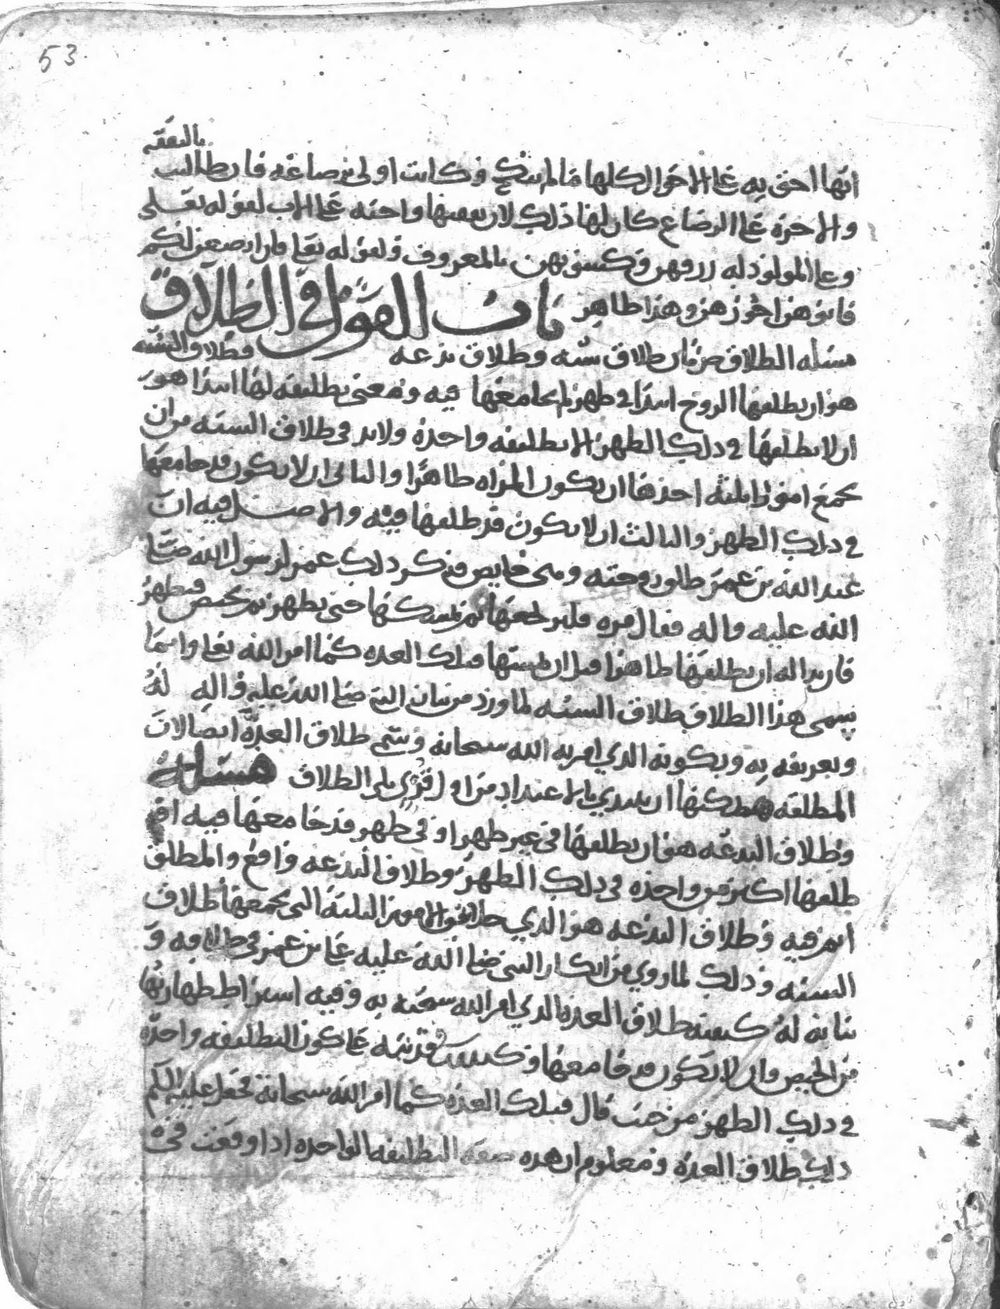 53
بالنفقه
انها احق به على الاحوال كلها ما لم تنكح وكانت اولى برضاعه فان طالبت
والاجره على الرضاع كان لها ذلك لان نفقتها واجبه على الاب لقوله تعلى
وعلى المولود له رزقهن وكسوتهن بالمعروف ولقوله تعلى فان ارضعن لكم
فاتوهن اجورهن وهذا ظاهر باب القول في الطلاق
مسئله الطلاق ضربان طلاق سنه وطلاق بدعه وطلاق السنه
هو ان يطلقها الزوج ابتدا في طهر لم يجامعها فيه ومعنى تطليقه لها ابتدا هو
ان لا يطلقها في ذلك الطهر الا تطليقه واحده ولابد في طلاق السنه من ان
يجمع امورا ثلثه احدها ان تكون المراه طاهرا والثاني ان لا يكون قد جامعها
في ذلك الطهر والثالث ان لا يكون قد طلقها فيه والاصل فيه ان
عبد الله بن عمر طلق زوجته وهي حايض فذكر ذلك عمر لرسول الله صلى
الله عليه واله فقال مره فليراجعها ثم يمسكها حتى تطهر ثم تحيض فتطهر
فان بدا له ان يطلقها طاهرا قبل ان يمسها فتلك العده كما امر الله تعلى وانما
يسمى هذا الطلاق طلاق السنه لما ورد من بيان النبي صلى الله عليه واله له
وتعريفه به وبكونه الذي امر به الله سبحانه ويسمى طلاق العدة ايضا لان
المطلقه يمكنها ان تبتدي بالاعتداد من اول قرء يلي الطلاق مسئله
وطلاق البدعه هو ان يطلقها في غير طهر او في طهر قد جامعها فيه او
طلقها اكثر من واحده في ذلك الطهر وطلاق البدعه واقع والمطلق
اثم فيه وطلاق البدعه هو الذي خالف الامور الثلثه التي يجمعها طلاق
السنه وذلك لما روي من انكار النبي صلى الله عليه على بن عمر في طلاقه و
بيانه له كيفيه طلاق العده الذي امر الله سبحنه به وفيه اشتراط طهارتها
من الحيض وان لا يكون قد جامعها على كون التطليقه واحده
في ذلك الطهر من حيث قال فتلك العده كما امر الله سبحانه فجعل عليه السلم
ذلك طلاق العده ومعلوم ان هذه صفه التطليقه الواحده اذا وقعت في